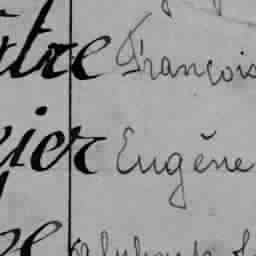 ître François
ier Eugène